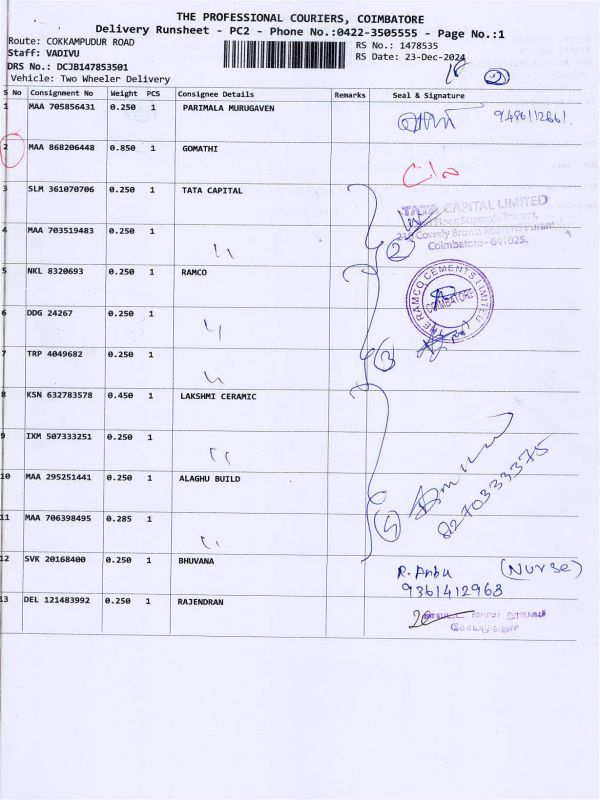 THE PROFESSIONAL COURIERS, COIMBATORE
Delivery Runsheet - PC2 - Phone No.:0422-3505555 - Page No.:1
Route: COKKAMPUDUR ROAD RS No.: 1478535
Staff: VADIVU RS Date: 23-Dec-2024
DRS No.: DCJB147853501
Vehicle: Two Wheeler Delivery
S No Consignment No Weight PCS Consignee Details Remarks Seal & Signature
1 MAA 705856431 0.250 1 PARIMALA MURUGAVEN
9486112661.
2 MAA 868206448 0.850 1 GOMATHI
3 SLM 361070706 0.250 1 TATA CAPITAL
TATA CAPITAL LIMITED
4 MAA 703519483 0.250 1 "
2
Coimbatore - 641025.
5 NKL 8320693 0.250 1 RAMCO
THE RAMCO CEMENTS LIMITED
COIMBATORE
6 DDG 24267 0.250 1 "
7 TRP 4049682 0.250 1 "
3
8 KSN 632783578 0.450 1 LAKSHMI CERAMIC
9 IXM 507333251 0.250 1 "
10 MAA 295251441 0.250 1 ALAGHU BUILD
8270333375
11 MAA 706398495 0.285 1 "
12 SVK 20168400 0.250 1 BHUVANA
R. Anbu (Nurse)
9361412968
13 DEL 121483992 0.250 1 RAJENDRAN